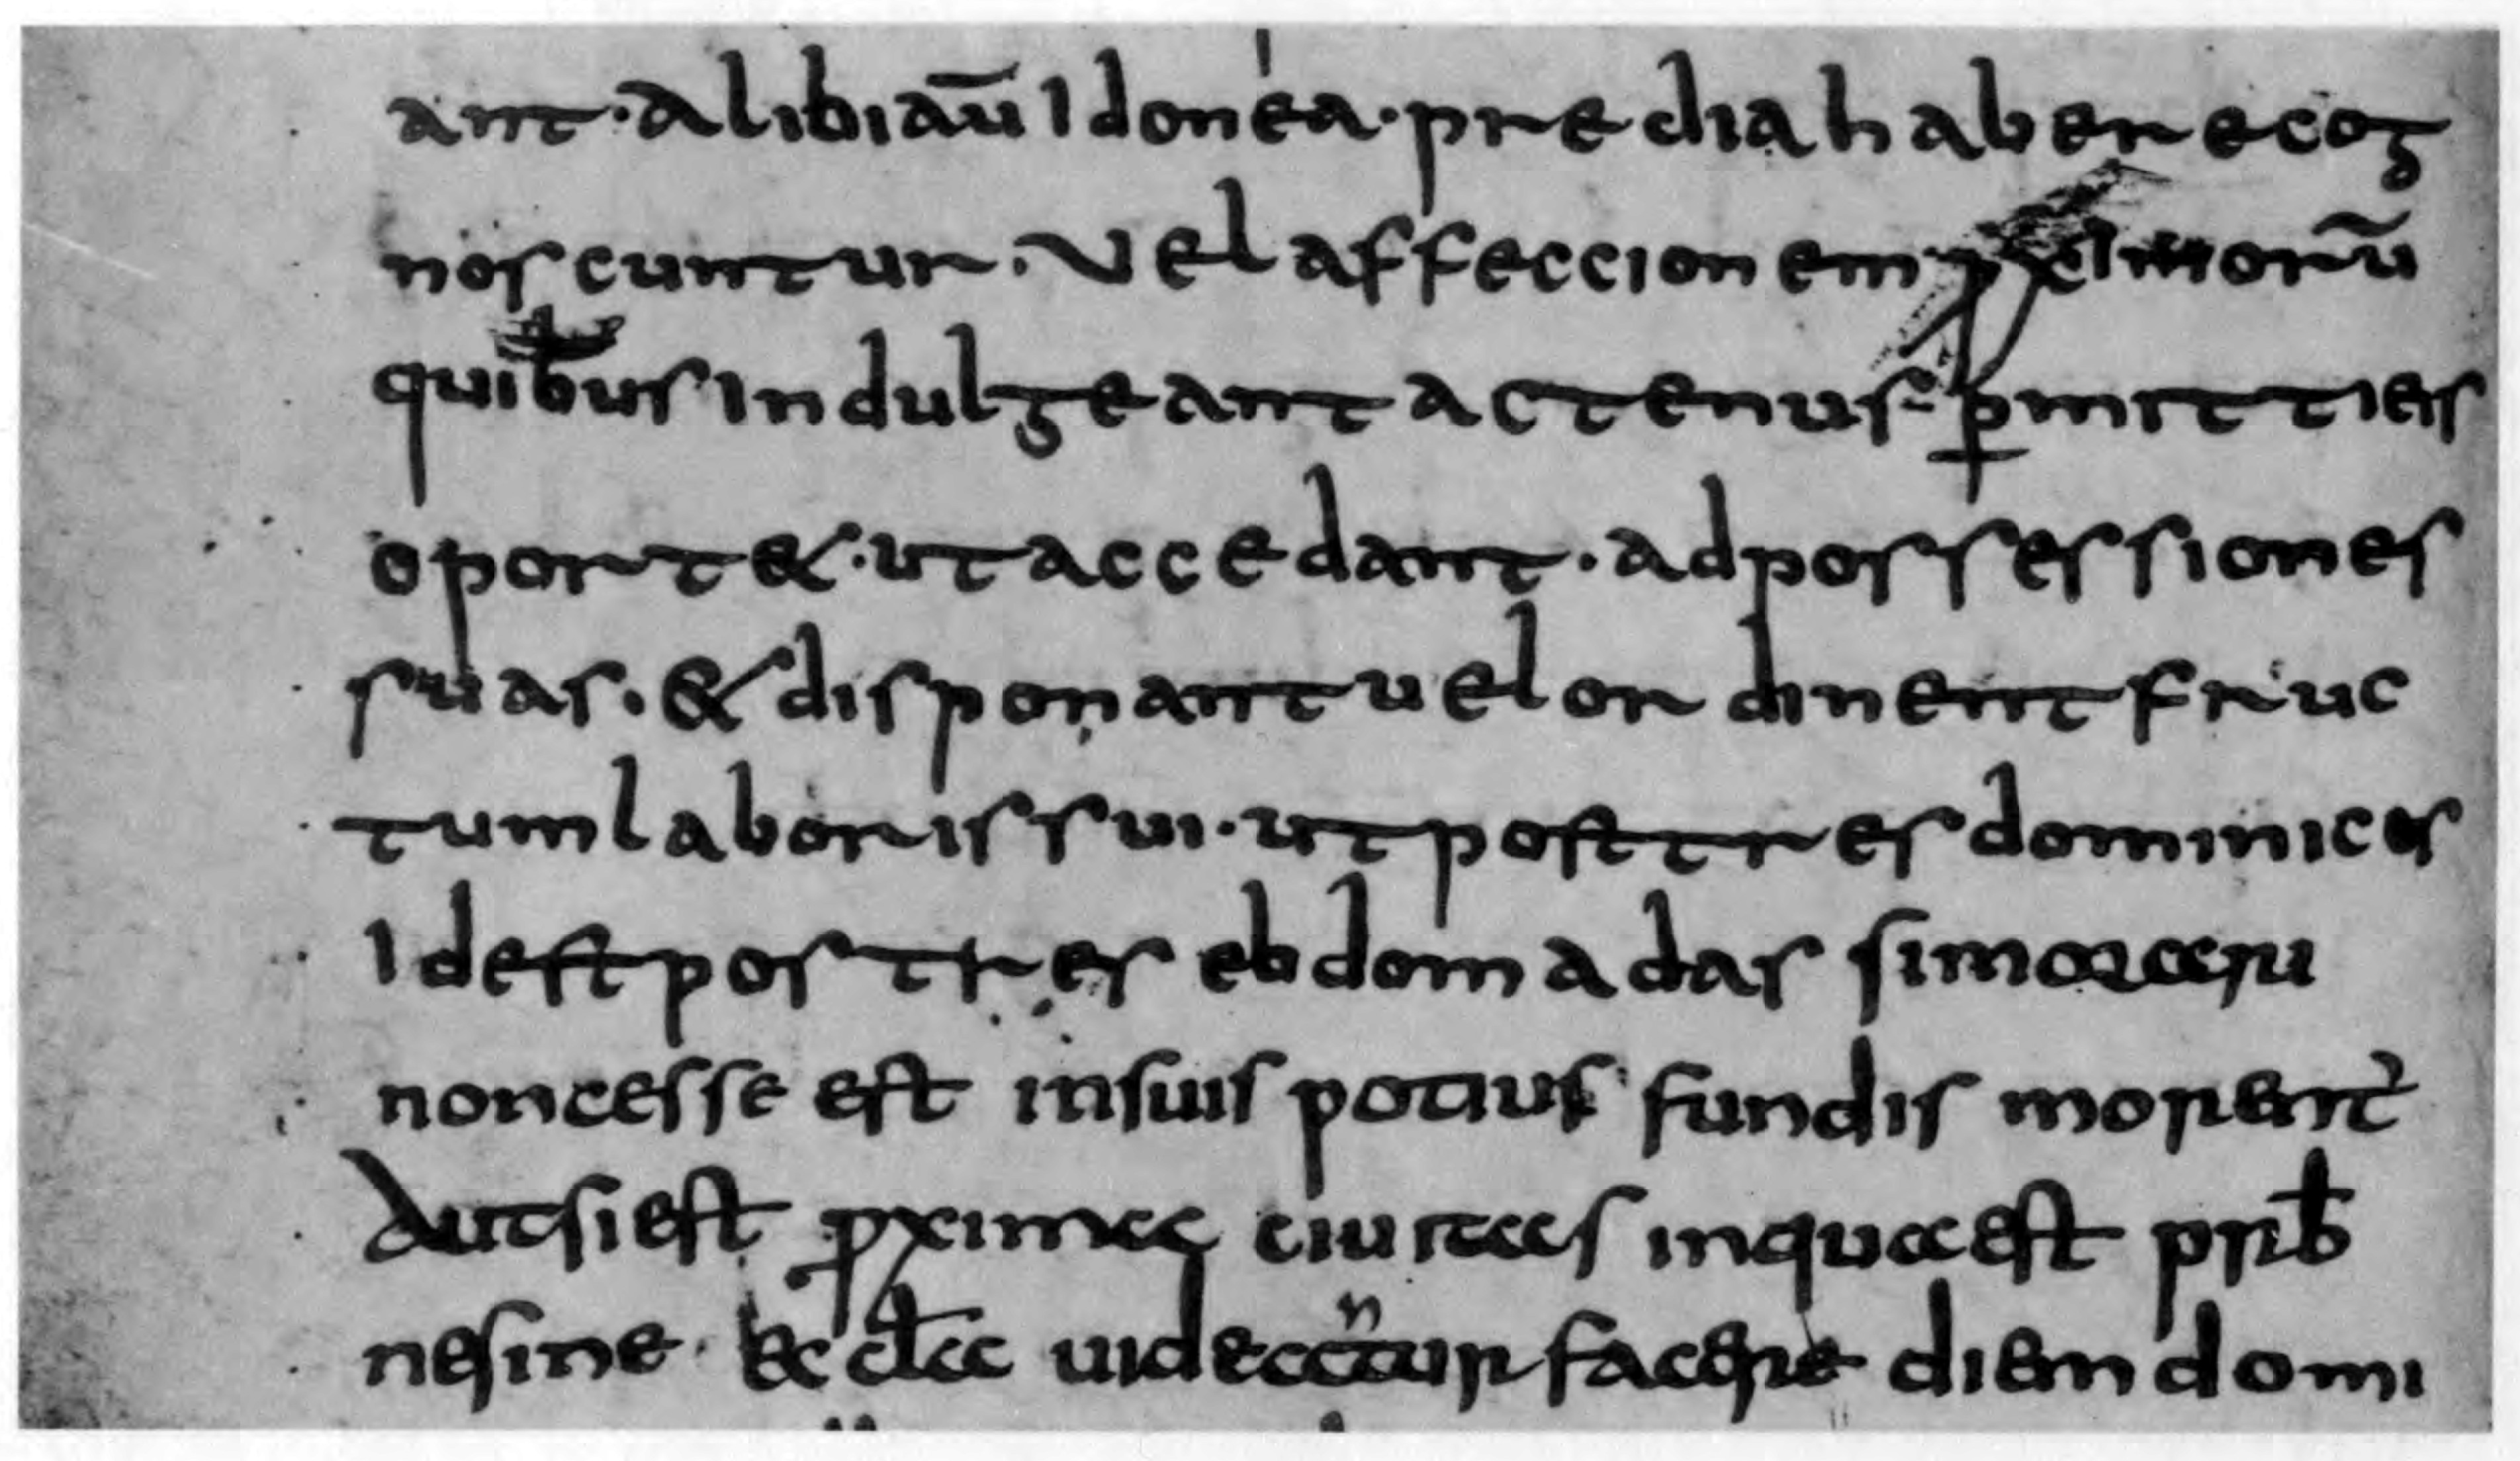 ant · alibi aū idonea · predia habere cog
noscuntur · vel affeccionem ꝓximorū
quibus indulgeant actenus ꝑmitti eis
oport& · ut accedant · ad possessiones
suas · & disponant uel ordinent fruc
tum laboris sui · ut post tres dominicos
id est pos tres ebdomadas si moraru
non cesse est in suis potius fundis morent᾿
aut si est ꝓxima ciuitas in qua est prƀ
ne sine &cła uideant̄ur facere diem domi